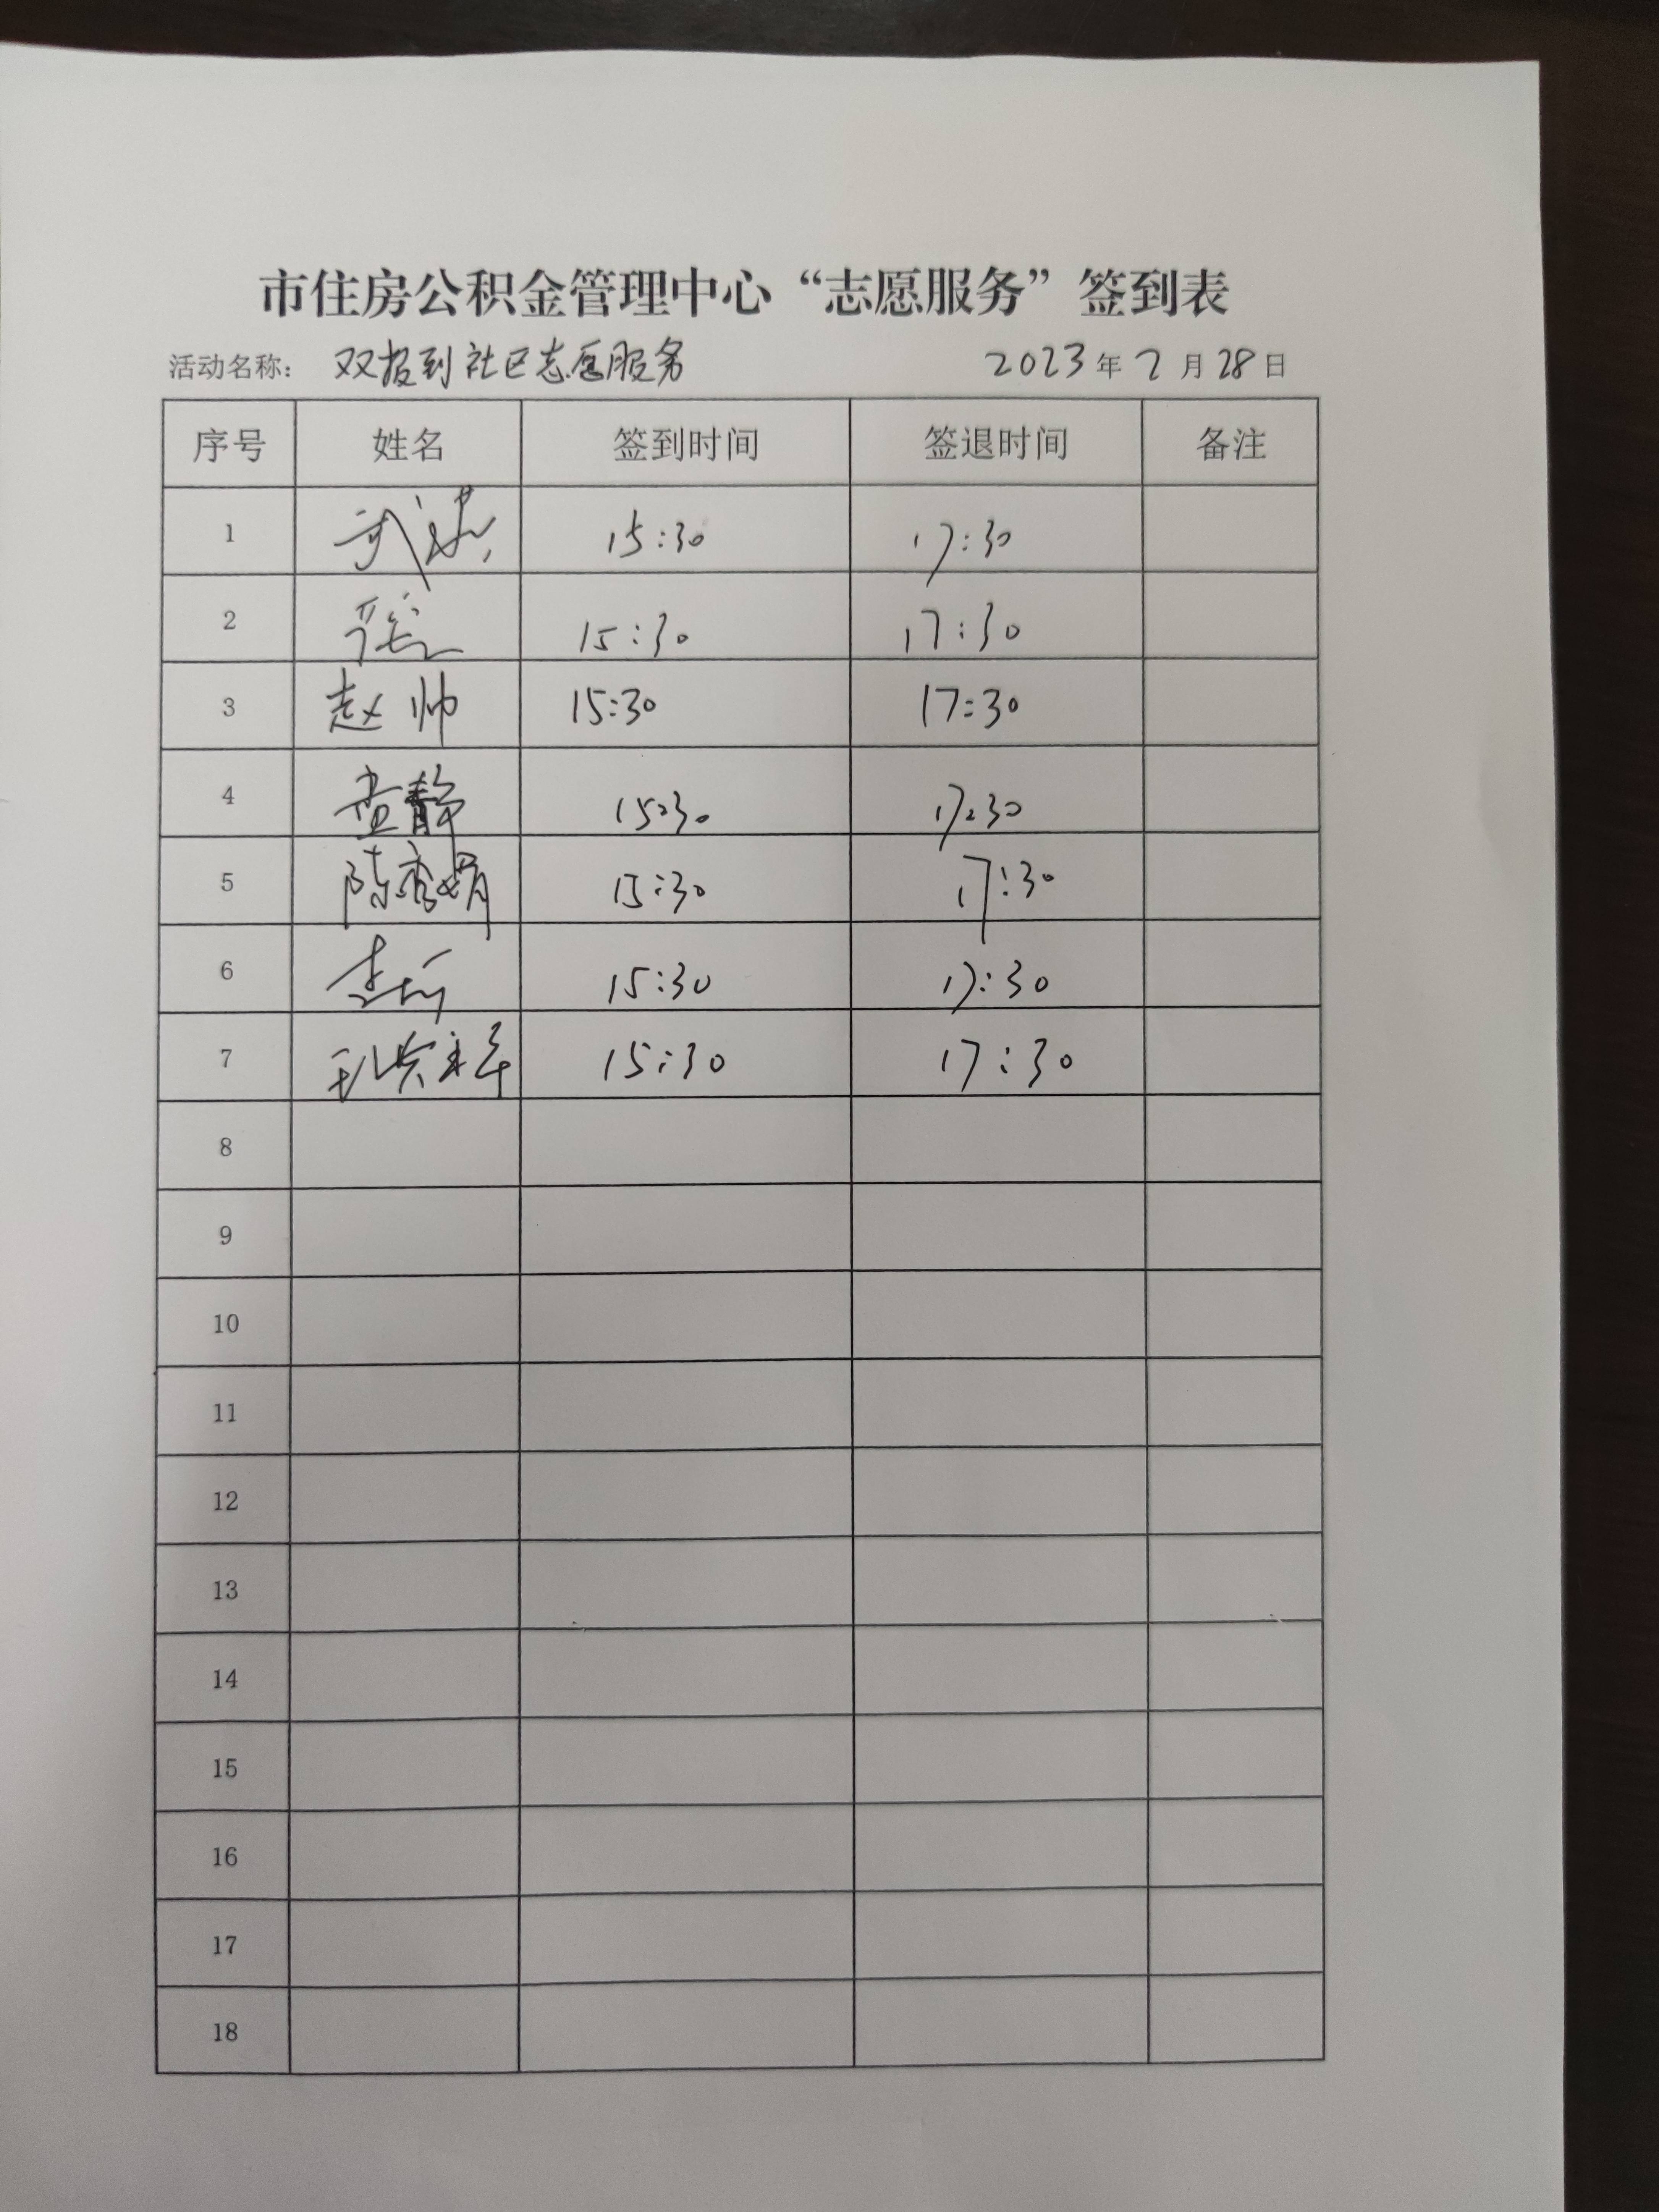 市住房公积金管理中心“志愿服务”签到表
活动名称: 双报到社区志愿服务 2023年2月28日
序号 姓名 签到时间 签退时间 备注
1 15:30 17:30
2 15:30 17:30
3 赵帅 15:30 17:30
4 查静 15:30 17:30
5 陈秀娟 15:30 17:30
6 15:30 17:30
7 15:30 17:30
8
9
10
11
12
13
14
15
16
17
18